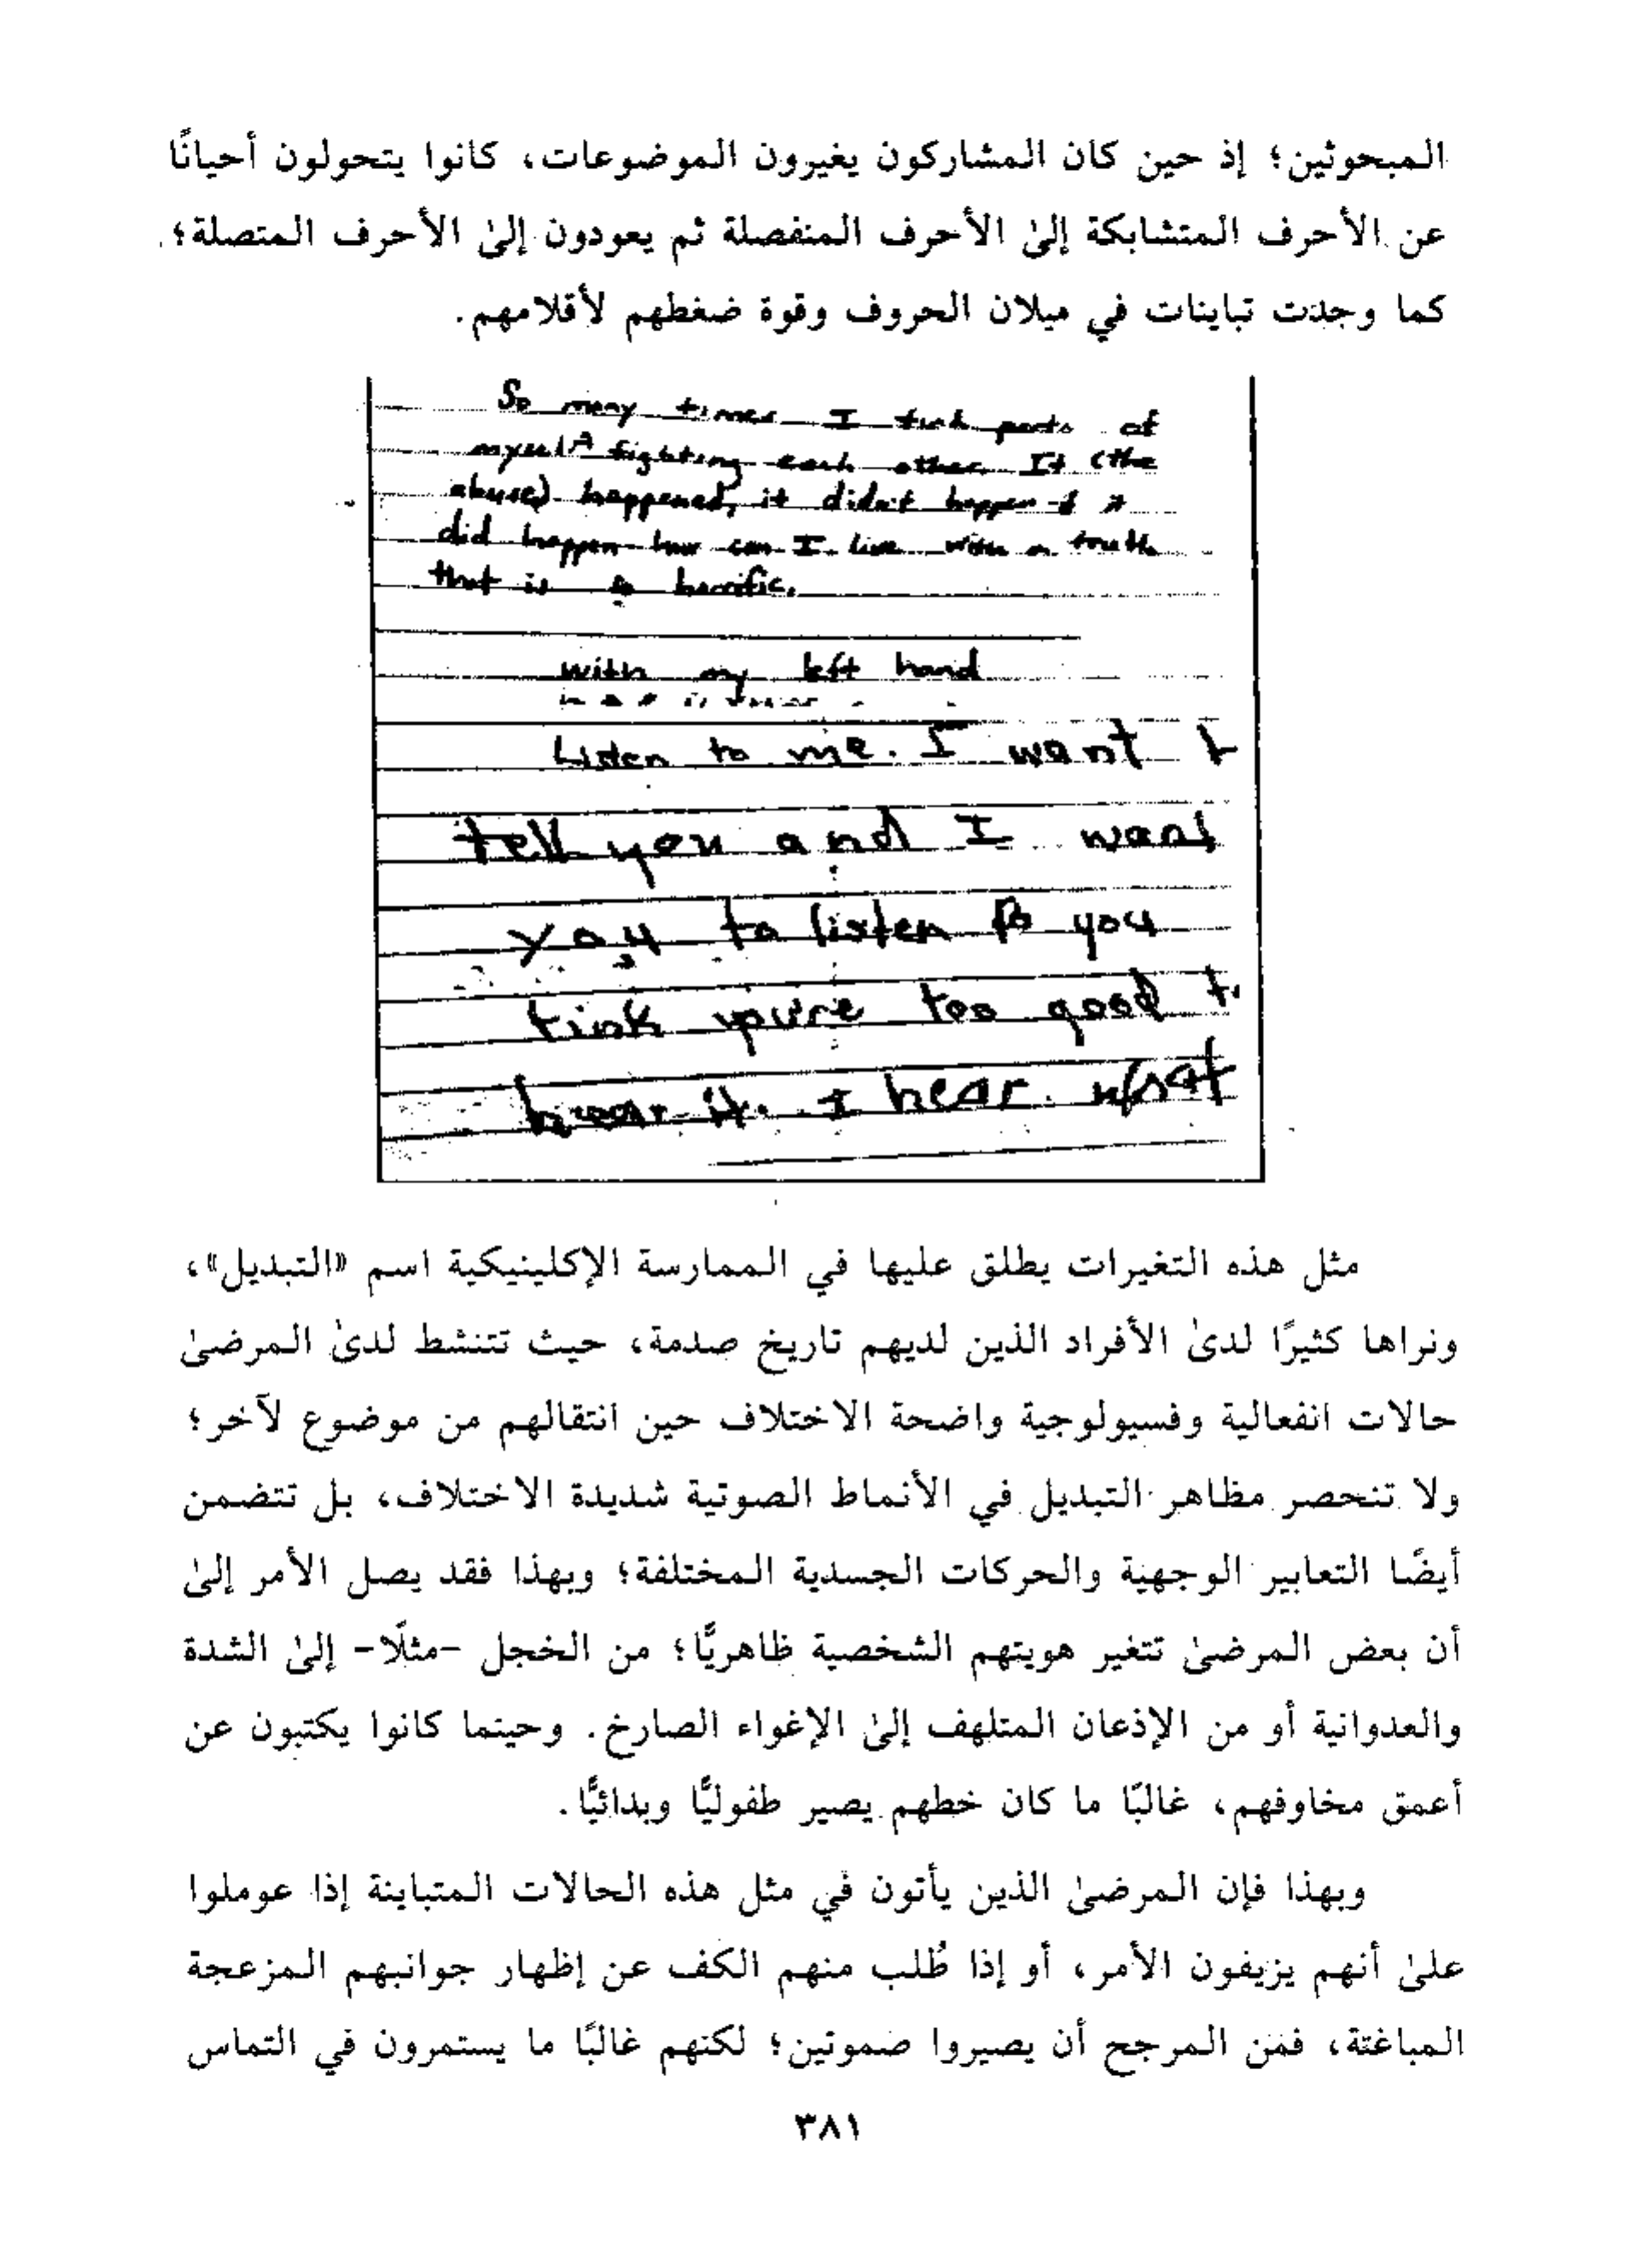 المبحوثين؛ إذ حين كان المشاركون يغيرون الموضوعات، كانوا يتحولون أحيانًا
عن الأحرف المتشابكة إلىٰ الأحرف المنفصلة ثم يعودون إلىٰ الأحرف المتصلة؛
كما وجدت تباينات في ميلان الحروف وقوة ضغطهم لأقلامهم.
So many times I find parts of
myself fighting each other It (the
abuse) happened, it didn't happen if it
did happen how can I live with a truth
that is so horrific.
with my left hand
Listen to me. I want t
tell you and I want
you to listen to you
tink you're too good to
hear it. I hear what
مثل هذه التغيرات يطلق عليها في الممارسة الإكلينيكية اسم «التبديل»،
ونراها كثيرًا لدىٰ الأفراد الذين لديهم تاريخ صدمة، حيث تتنشط لدىٰ المرضىٰ
حالات انفعالية وفسيولوجية واضحة الاختلاف حين انتقالهم من موضوع لآخر؛
ولا تنحصر مظاهر التبديل في الأنماط الصوتية شديدة الاختلاف، بل تتضمن
أيضًا التعابير الوجهية والحركات الجسدية المختلفة؛ وبهذا فقد يصل الأمر إلىٰ
أن بعض المرضىٰ تتغير هويتهم الشخصية ظاهريًّا؛ من الخجل -مثلًا- إلىٰ الشدة
والعدوانية أو من الإذعان المتلهف إلىٰ الإغواء الصارخ. وحينما كانوا يكتبون عن
أعمق مخاوفهم، غالبًا ما كان خطهم يصير طفوليًّا وبدائيًّا.
وبهذا فإن المرضىٰ الذين يأتون في مثل هذه الحالات المتباينة إذا عوملوا
علىٰ أنهم يزيفون الأمر، أو إذا طُلب منهم الكف عن إظهار جوانبهم المزعجة
المباغتة، فمن المرجح أن يصيروا صموتين؛ لكنهم غالبًا ما يستمرون في التماس
٣٨١